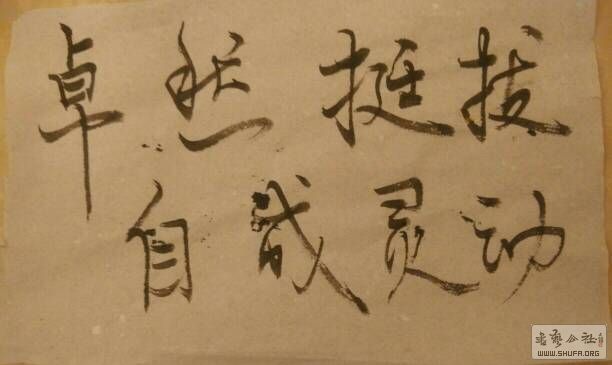 卓然挺拔
自成灵动
书艺公社
WWW.SHUFA.ORG